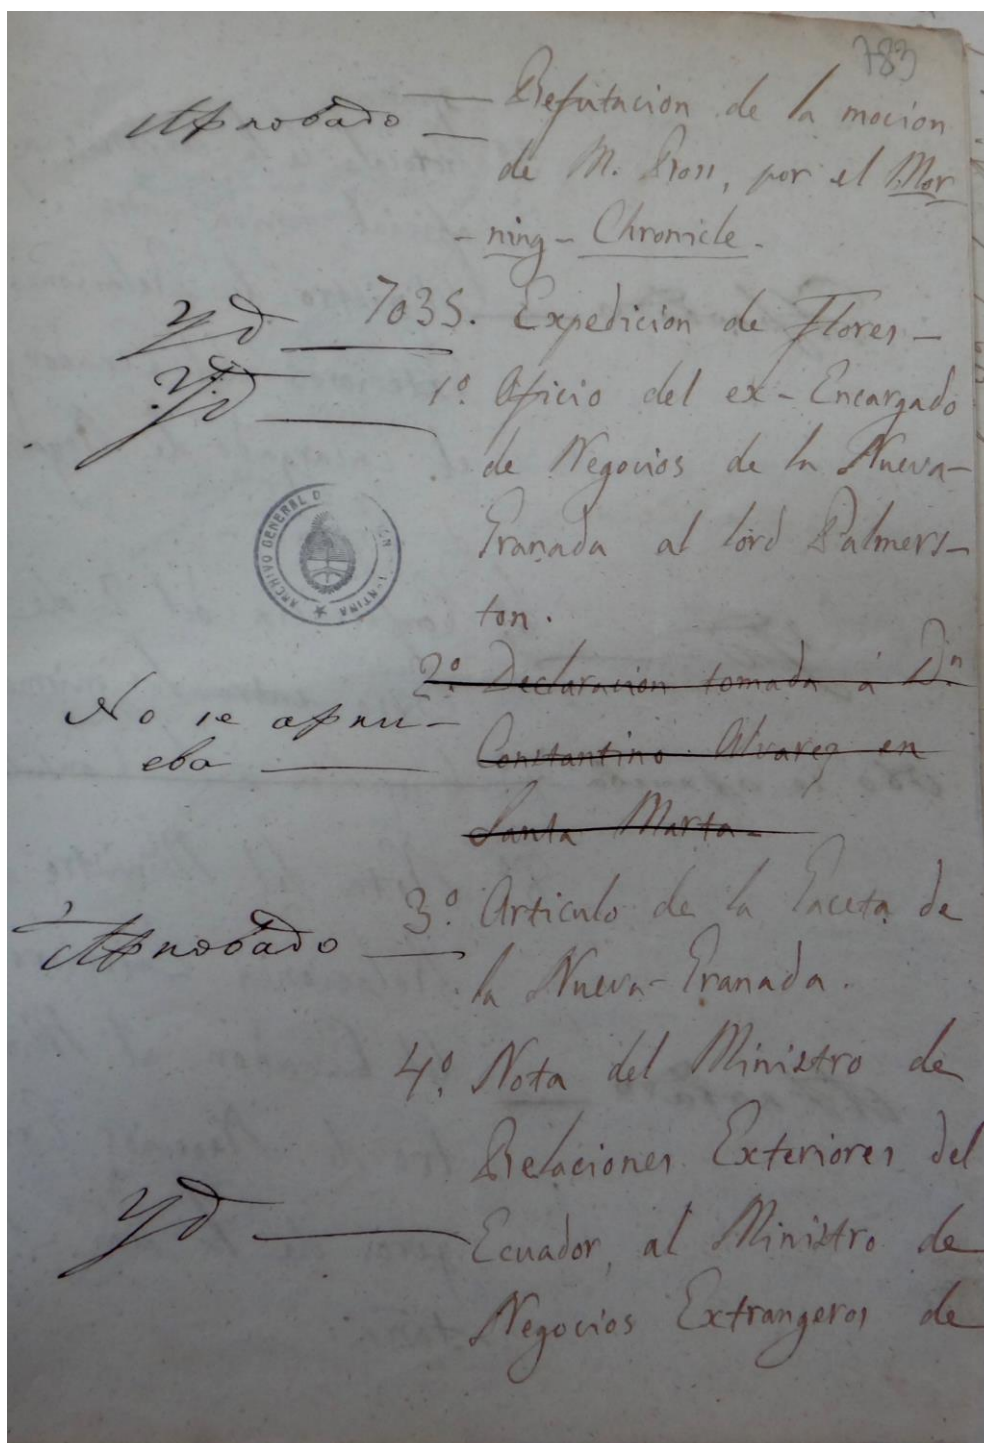 783
Aprobado — Refutacion de la mocion
de M. Ross, por el Mor
- ning - Chronicle.
Yd — 7035. Expedicion de Flores -
Yd — 1º. Oficio del ex-Encargado
de Negocios de la Nueva-
Granada al lord Palmers-
ton.
ARCHIVO GENERAL D
2º. Declaracion tomada á Dn
No se aprue- Constantino Alvarez en
eba — Santa Marta -
Aprobado — 3º. Articulo de la Gaceta de
la Nueva-Granada.
4º. Nota del Ministro de
Relaciones Exteriores del
Yd — Ecuador, al Ministro de
Negocios Extrangeros de